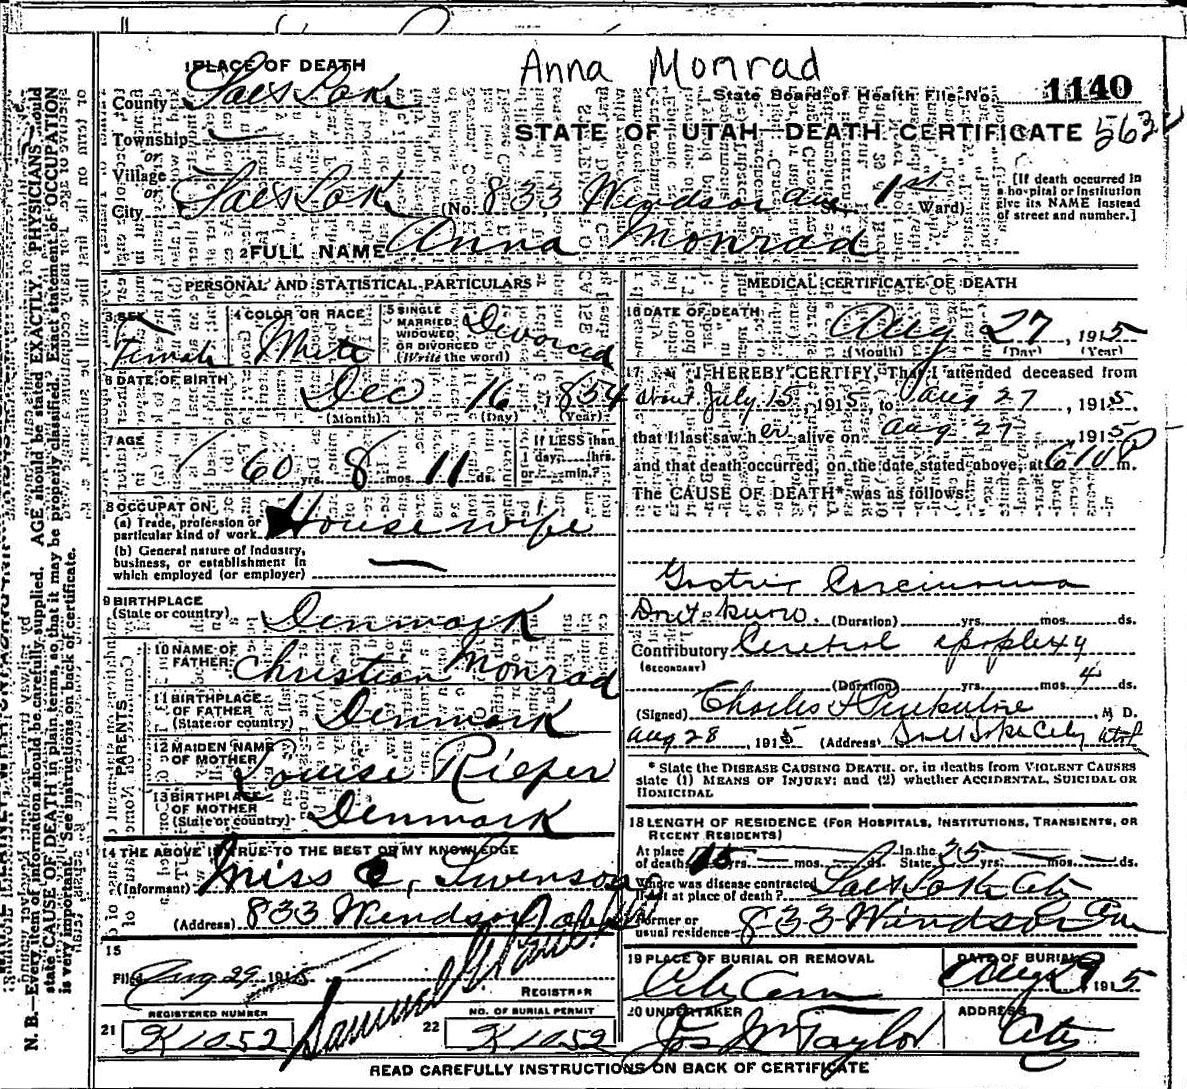 Anna Monrad
1 PLACE OF DEATH
State Board of Health File No. 1140
County Salt Lake
Township
STATE OF UTAH—DEATH CERTIFICATE 563
or
Village
or
City Salt Lake (No. 833 Windsor Ave St. 1st Ward)
[If death occurred in a hospital or institution give its NAME instead of street and number.]
2 FULL NAME Anna Monrad
PERSONAL AND STATISTICAL PARTICULARS
3 SEX Female
4 COLOR OR RACE White
5 SINGLE MARRIED WIDOWED OR DIVORCED (Write the word) Divorced
6 DATE OF BIRTH Dec 16 1854
(Month) (Day) (Year)
7 AGE 60 yrs. 8 mos. 11 ds.
If LESS than 1 day, hrs. or min.?
8 OCCUPATION
(a) Trade, profession or particular kind of work Housewife
(b) General nature of Industry, business, or establishment in which employed (or employer) —
9 BIRTHPLACE (State or country) Denmark
PARENTS
10 NAME OF FATHER Christian Monrad
11 BIRTHPLACE OF FATHER (State or country) Denmark
12 MAIDEN NAME OF MOTHER Louise Rieper
13 BIRTHPLACE OF MOTHER (State or country) Denmark
14 THE ABOVE IS TRUE TO THE BEST OF MY KNOWLEDGE
(Informant) Miss C. Swenson
(Address) 833 Windsor
15
Filed Aug 29 1915
REGISTRAR
REGISTERED NUMBER
21 K1052
NO. OF BURIAL PERMIT
22 K1052
MEDICAL CERTIFICATE OF DEATH
16 DATE OF DEATH Aug 27, 1915
(Month) (Day) (Year)
17 I HEREBY CERTIFY, That I attended deceased from
about July 15 1915, to Aug 27, 1915,
that I last saw her alive on Aug 27 1915
and that death occurred, on the date stated above, at 6/10 P m.
The CAUSE OF DEATH* was as follows:
Gastric Carcinoma
Don't know. (Duration) yrs. mos. ds.
Contributory Cerebral apoplexy
(SECONDARY)
(Duration) yrs. mos. 4 ds.
(Signed) Charles M. D.
Aug 28, 1915 (Address) Salt Lake City Utah
* State the DISEASE CAUSING DEATH, or, in deaths from VIOLENT CAUSES
state (1) MEANS OF INJURY; and (2) whether ACCIDENTAL, SUICIDAL OR
HOMICIDAL
18 LENGTH OF RESIDENCE (FOR HOSPITALS, INSTITUTIONS, TRANSIENTS, OR
RECENT RESIDENTS)
At place of death 15 yrs. mos. ds. In the State 35 yrs. mos. ds.
Where was disease contracted if not at place of death? Salt Lake City
Former or usual residence 833 Windsor Ave
19 PLACE OF BURIAL OR REMOVAL City Cem
DATE OF BURIAL Aug 29 1915
20 UNDERTAKER Jos Wm Taylor
ADDRESS City
READ CAREFULLY INSTRUCTIONS ON BACK OF CERTIFICATE
N. B.—Every item of information should be carefully supplied. AGE should be stated EXACTLY. PHYSICIANS should
state CAUSE OF DEATH in plain terms, so that it may be properly classified. Exact statement of OCCUPATION
is very important. See instructions on back of certificate.